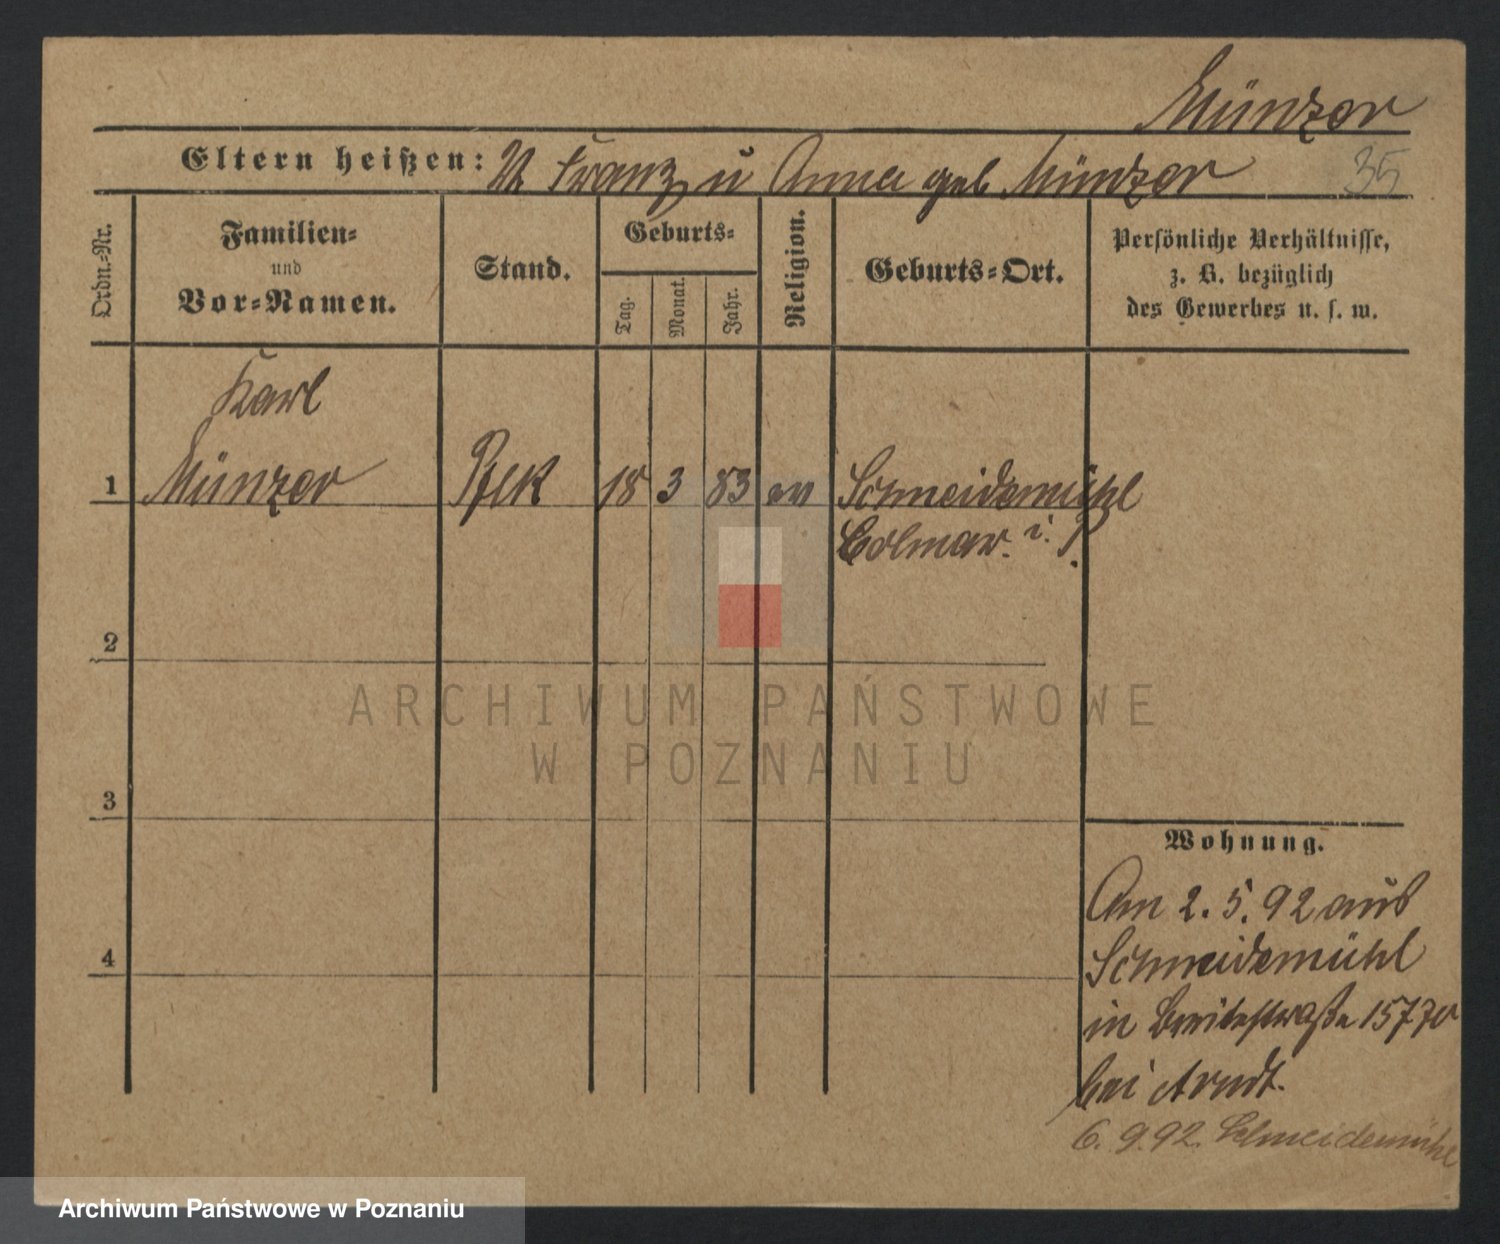 Münzer
Eltern heißen: Franz u Anna geb Münzer
35
Ordn.-Nr.
Familien-
und
Vor-Namen.
Stand.
Geburts-
Tag.
Monat.
Jahr.
Religion.
Geburts-Ort.
Persönliche Verhältnisse,
z. B. bezüglich
des Gewerbes u. s. w.
Karl
1 Münzer 18 3 83 ev Schneidemühl
Colmar i. P.
2
3
4
ARCHIWUM PAŃSTWOWE
W POZNANIU
Wohnung.
Am 2. 5. 92 aus
Schneidemühl
in Breitestraße 15
bei Arndt.
6. 9. 92. Schneidemühl
Archiwum Państwowe w Poznaniu